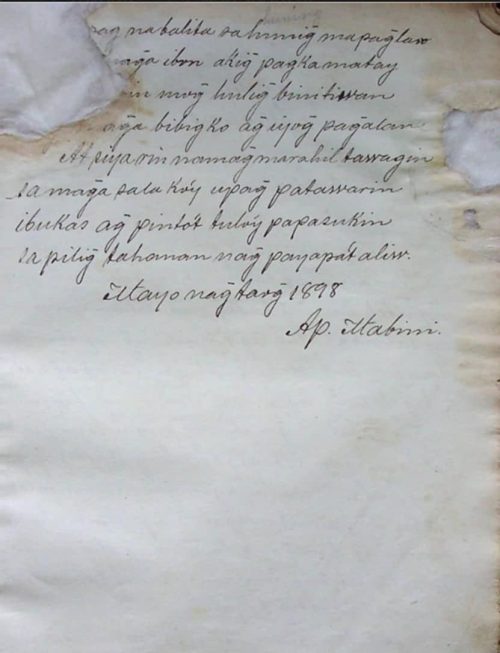 nabalita sa hunig̃ mapag̃law
ibon akig̃ pagkamatay
mog̃ hulig̃ binitiwan
bibig ko ag̃ iyog̃ pag̃alan
At siya rin namag̃ marahil tawagin
sa mag̃a sala ko'y upag̃ patawarin
ibukas ag̃ pinto't tuloy papasukin
sa pilig̃ tahanan nag̃ payapa't aliw.
Mayo nag̃ taog̃ 1898
Ap. Mabini.